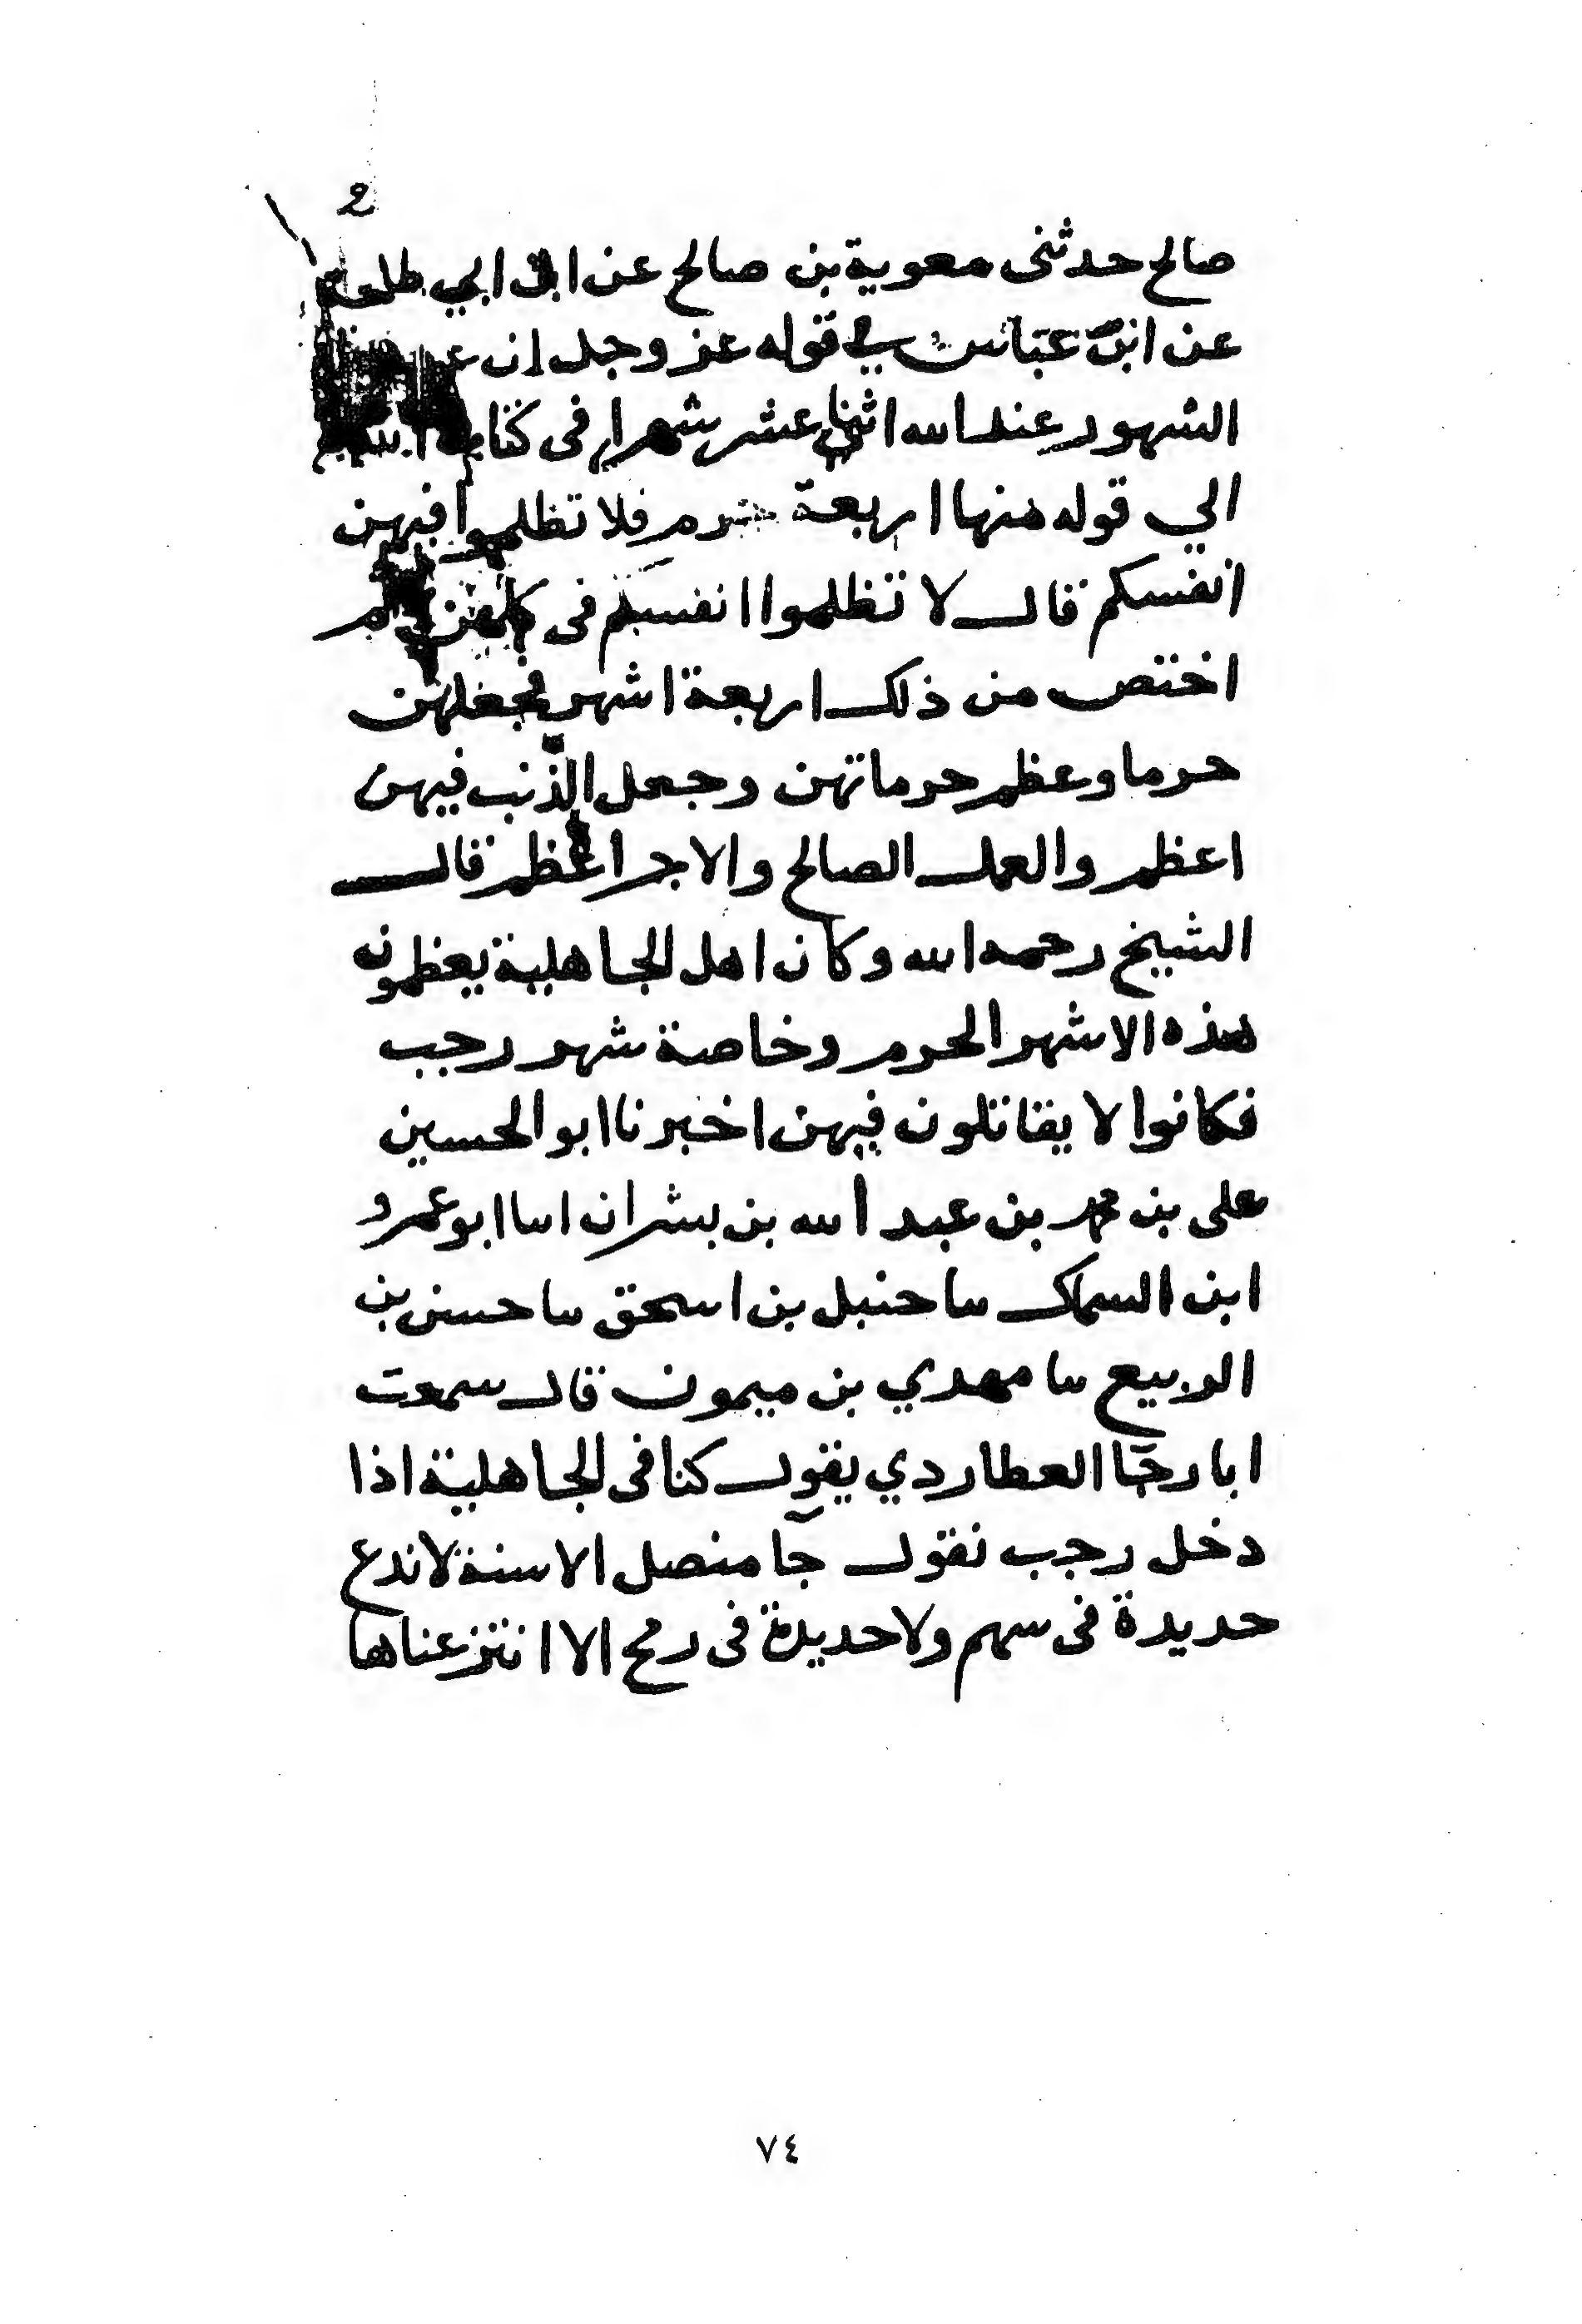 2
صالح حدثنى معوية بن صالح عن ابن ابي طلحة
عن ابن عباس في قوله عز وجل ان
الشهور عند الله اثنى عشر شهرا فى كتاب الله
الي قوله منها اربعة حرم فلا تظلموا فيهن
انفسكم قال لا تظلموا انفسكم فى كلهن ثم
اختص من ذلك اربعة اشهر فجعلهن
حرما وعظم حرماتهن وجعل الذنب فيهن
اعظم والعمل الصالح والاجر اعظم قال
الشيخ رحمه الله وكان اهل الجاهلية يعظمون
هذه الاشهر الحرم وخاصة شهر رجب
فكانوا لا يقاتلون فيهن اخبرنا ابو الحسين
على بن محمد بن عبد الله بن بشران انا ابو عمرو
ابن السماك نا حنبل بن اسحق نا حسن بن
الربيع نا مهدي بن ميمون قال سمعت
ابا رجآ العطاردي يقول كنا فى الجاهلية اذا
دخل رجب نقول جآ منصل الاسنة لا ندع
حديدة فى سهم ولا حديدة فى رمح الا انتزعناها
٧٤